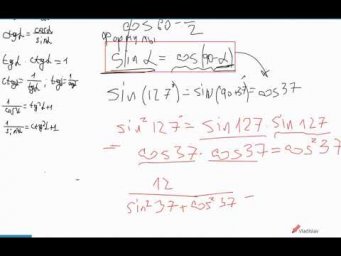 ctgα = cosα/sinα
tgα ctgα = 1
ctgα = 1/tgα; tgα = 1/ctgα
1/cos²α = tg²α+1
1/sin²α = ctg²α+1
cos60 = 
sinα = cos(90-α)
sin(127°) = sin(90+37) = cos37
sin²127° = sin127 · sin127
= cos37 · cos37 = cos²37
12/(sin²37+cos²37) =